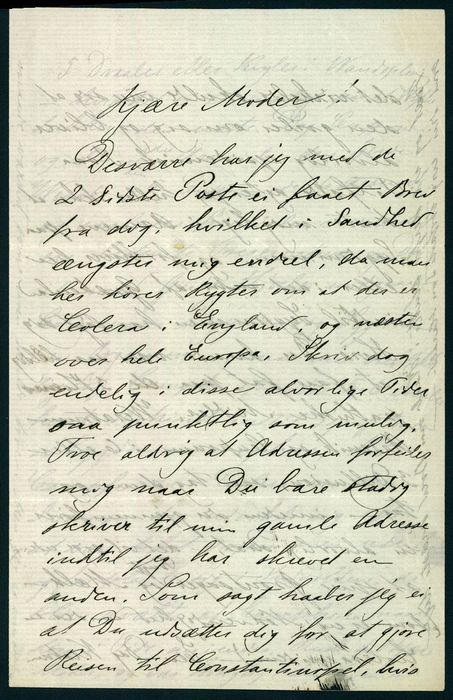 Kjære Moder!
Desværre har jeg med de
2 Sidste Poste ei faaet Brev
fra dig, hvilket i Sandhed
ængster mig endeel, da man
her hører Rygter om at der er
Colera i England, og næsten
over hele Europa. Skriv dog
endelig i disse alvorlige Tider
saa punktlig som mulig.
Troe aldrig at Adressen forfeiler
mig naar Du bare stadig
skriver til min gamle Adresse
indtil jeg har skrevet en
anden. Som sagt haaber jeg ei
at Du udsætter dig for at gjøre
Reisen til Constantinopel, hvis